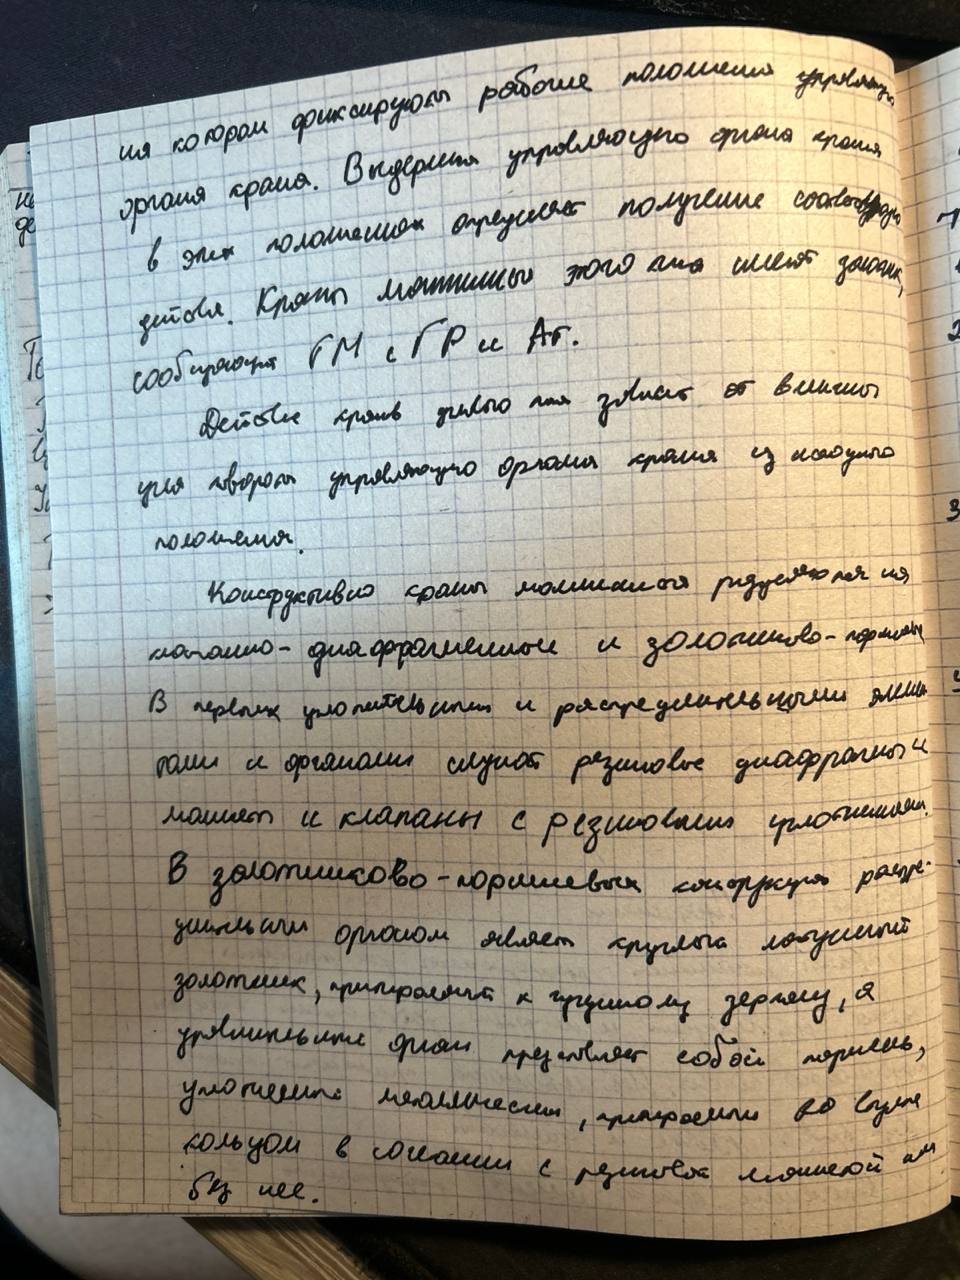 ия котором фиксируют рабочие положения управляющ
органа крана. Выдержка управляющего органа крана
в этих положениях определяет получение соответствующ
действия. Краны машиниста этого типа имеют
сообщающий ГМ с ГР и Ат.
Действие кранов типа зависит от величины
угла поворота управляющего органа крана из исходного
положения.
Конструктивно краны машиниста разделяются на
клапанно-диафрагменные и золотниково-поршневые
В первых уплотнительными и распределительными элемен
тами и органами служат резиновые диафрагмы и
манжеты и клапаны с резиновыми уплотнениями.
В золотниково-поршневых конструкциях распре-
делительным органом является круглый латунный
золотник, притираемый к чугунному зеркалу, а
уравнительный орган представляет собой поршень,
уплотненный металлическим, притираемым во втулке
кольцом в сочетании с резиновой манжетой или
без нее.